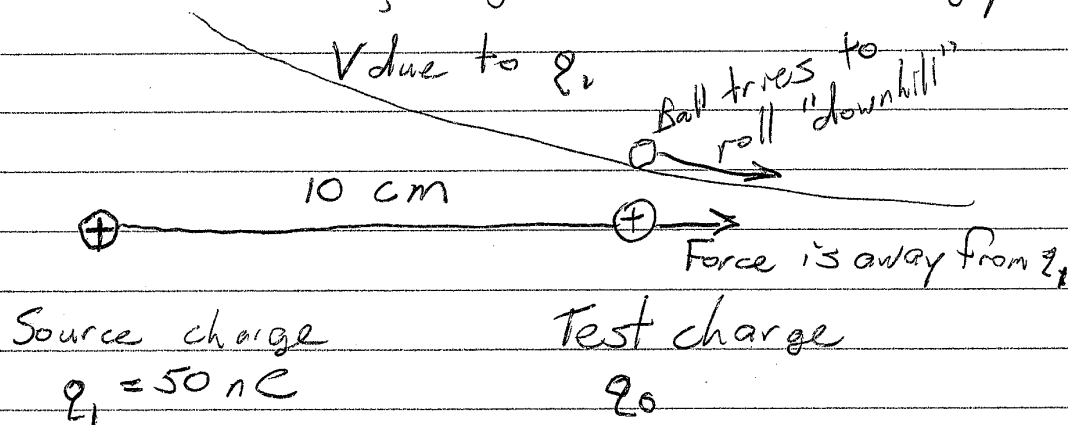 V due to q₁
Ball tries to
roll "downhill"
10 cm
+
+
Force is away from q₁
Source charge
Test charge
q₁ = 50 nC
q₀